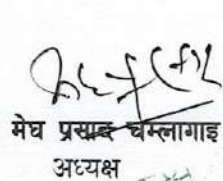 मेघ प्रसाद चम्लागाइ
अध्यक्ष